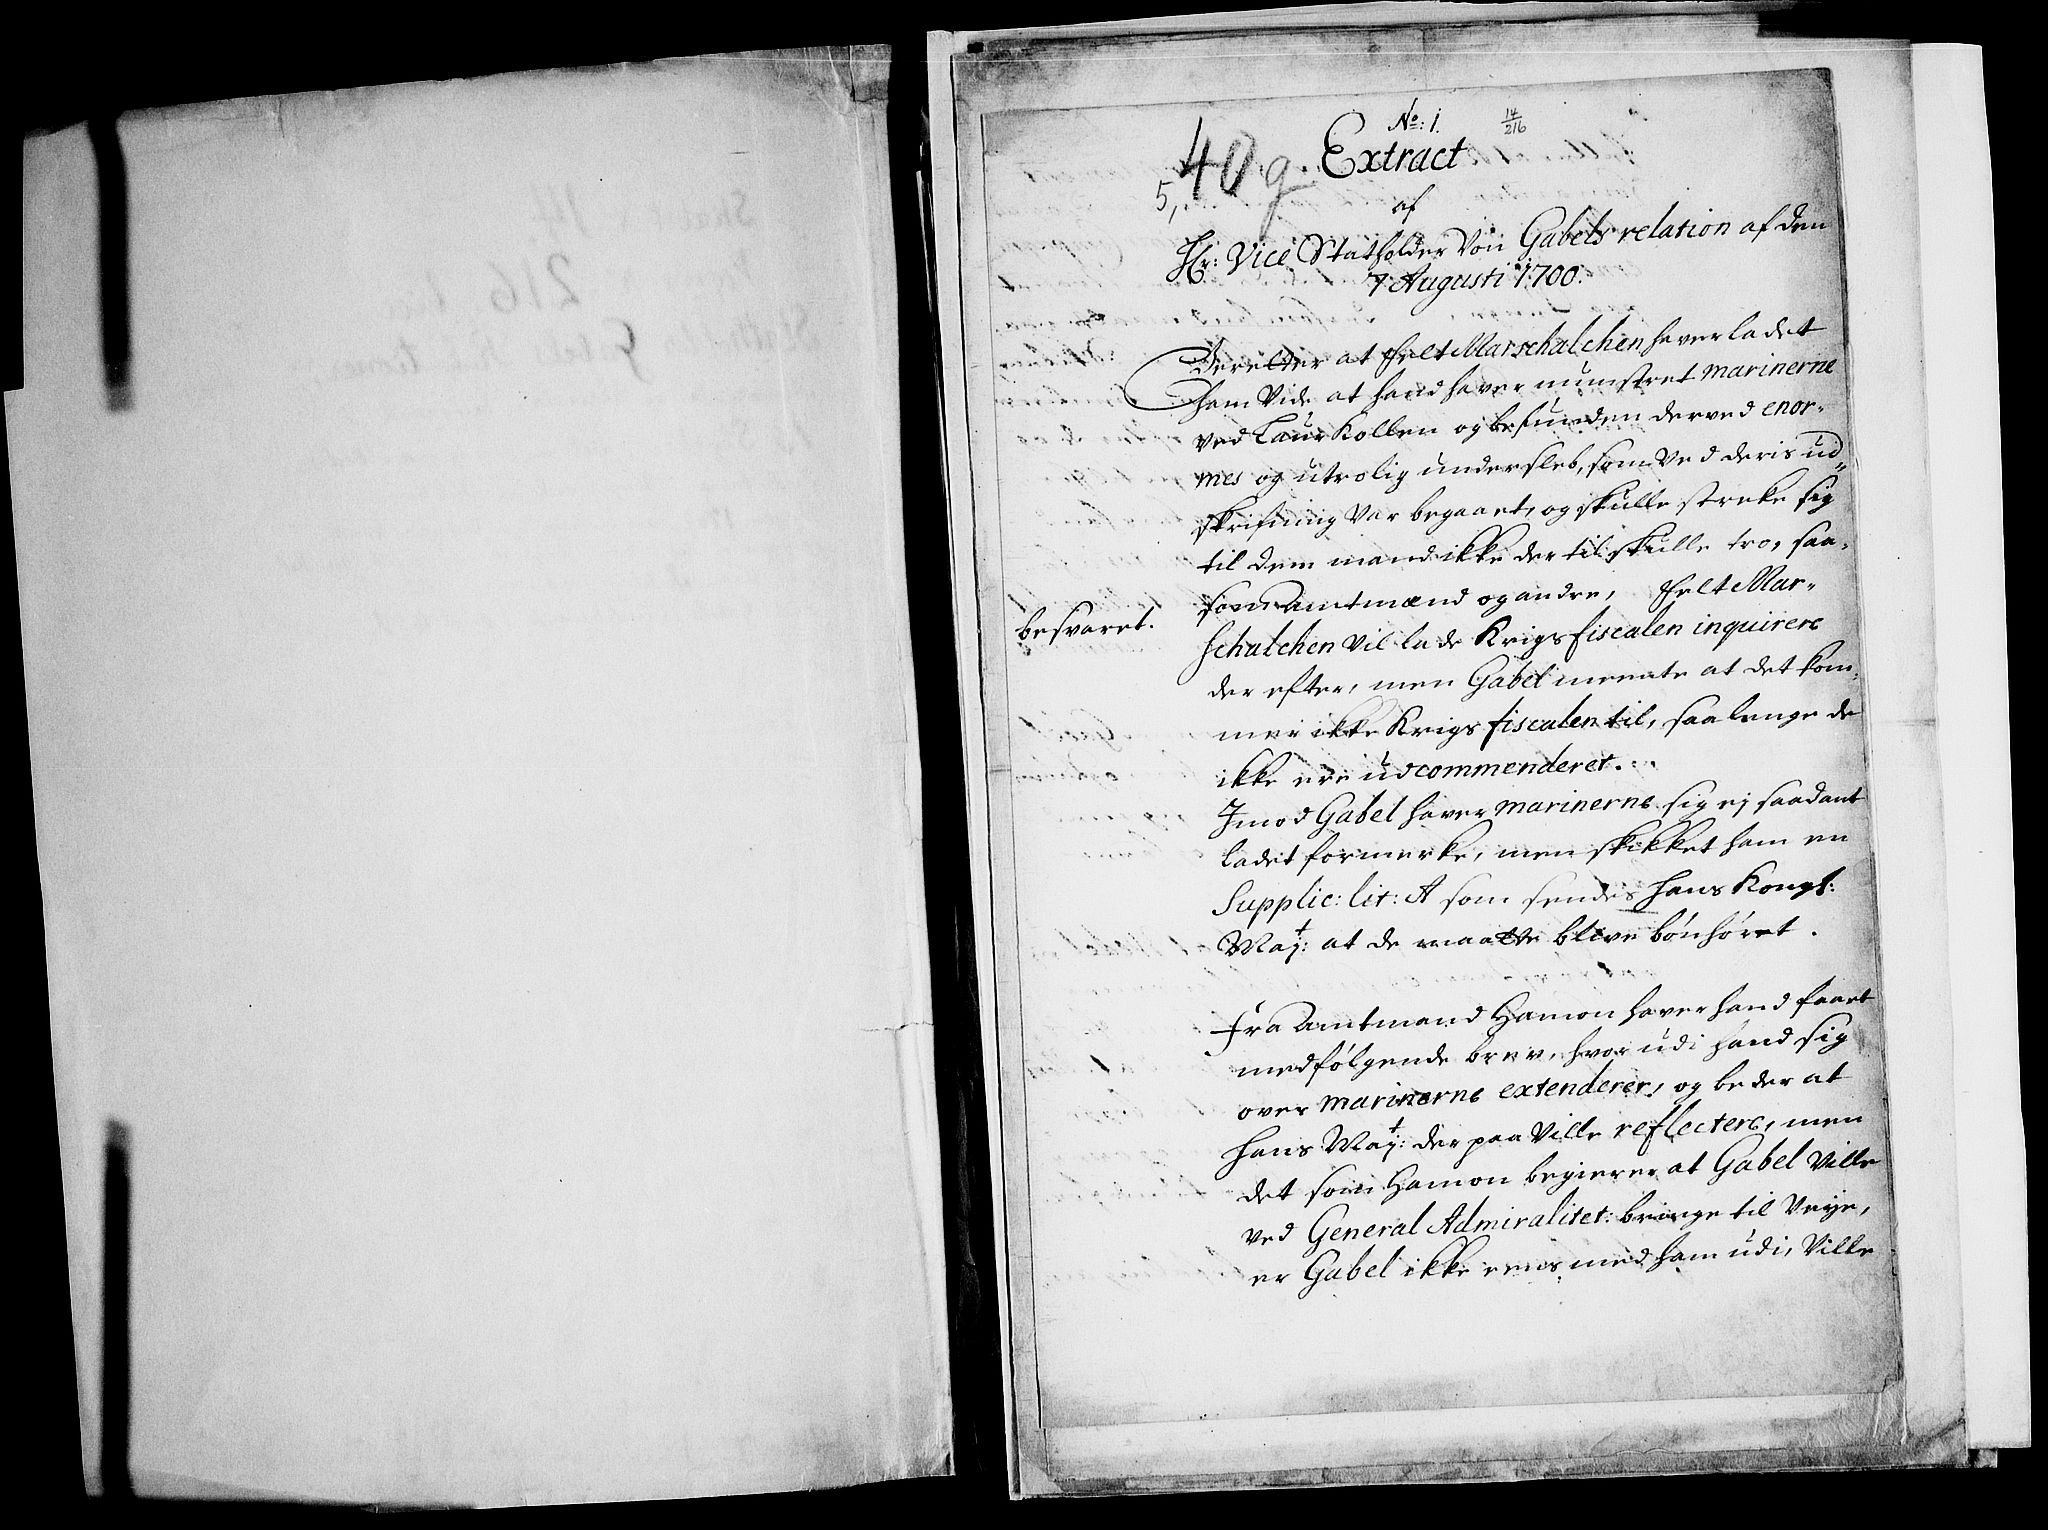 No: 1.
14/216
40 g
5,
Extract
af
Hr: Vice Statholder Von Gabels relation af den
7 Augusti 1700.
Beretter at Felt Marschalchen haver ladet
ham Vide at hand haver munstret marinerne
ved Laurkollen og befunden derved enor-
mes og utrolig undersleb, som Ved deris ud-
skrifning Var begaaet, og skulle streke sig
til dem mand ikke der til skulle tro, saa-
som Amtmænd og andre, Felt Mar-
schalchen Vil lade Krigs fiscalen inquirere
der efter, men Gabel meente at det kom-
mer ikke Krigs fiscalen til, saa lenge de
ikke ere udcommenderet.
besvaret.
Imod Gabel haver marinerne sig ej saadant
ladet formerke, men skikket ham en
Supplic: lit: A som sendes Hans Kongl:
May:t at de maatte blive bönhöret.
Fra Amtmand Hamon haver hand faaet
medfölgende brev, hvor udi hand sig
over marinerne extenderer, og beder at
Hans May:t der paa Ville reflectere, men
det som Hamon begierer at Gabel Ville
ved General Admiralitet: bringe til Veye,
er Gabel ikke eens med ham udi, Ville